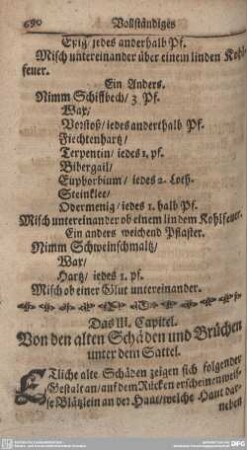 690 Vollständiges
Epig/ jedes anderhalb Pf.
Misch untereinander über einem linden Kohl-
feuer.
Ein Anders.
Nimm Schiffbech/ 3 Pf.
Wax/
Vorstoß/ iedes anderthalb Pf.
Fiechtenhartz/
Terpentin/ iedes 1. pf.
Bibergail/
Euphorbium/ iedes 2. Loth.
Steinklee/
Odermenig/ iedes 1. halb Pf.
Misch untereinander ob einem lindem Kohlfeuer.
Ein anders weichend Pflaster.
Nimm Schweinschmaltz/
Wax/
Hartz/ iedes 1. pf.
Misch ob einer Glut untereinander.
Das III. Capitel.
Von den alten Schäden und Brüchen
unter dem Sattel.
Etliche alte Schäden zeigen sich folgender
Gestalt an/ auf dem Rücken erscheinen weis-
se Blätzlein an der Haut/ welche Haut dar-
neben